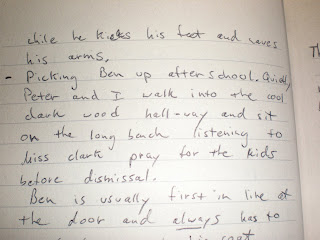 while he kicks his feet and waves
his arms.
- Picking Ben up after school. Quickly
Peter and I walk into the cool
dark wood hall-way and sit
on the long bench listening to
Miss Clark pray for the kids
before dismissal.
Ben is usually first in line at
the door and always has to
his coat
Th